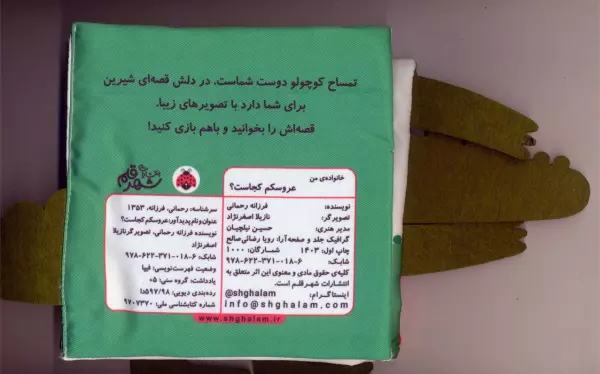 تمساح کوچولو دوست شماست. در دلش قصه‌ای شیرین
برای شما دارد با تصویرهای زیبا.
قصه‌اش را بخوانید و باهم بازی کنید!
شهر قلم
خانواده‌ی من
عروسکم کجاست؟
نویسنده: فرزانه رحمانی
تصویرگر: نازیلا اصغرنژاد
مدیر هنری: حسین نیلچیان
گرافیک جلد و صفحه‌آرا: رویا رضائی‌صالح
چاپ اول: ۱۴۰۳ شمارگان: ۱۰۰۰
شابک: ۹۷۸-۶۲۲-۳۷۱-۰۱۸-۶
کلیه‌ی حقوق مادی و معنوی این اثر متعلق به
انتشارات شهر قلم است.
اینستاگرام: @shghalam
info@shghalam.com
سرشناسه: رحمانی، فرزانه، ۱۳۵۳
عنوان و نام پدیدآور: عروسکم کجاست؟
نویسنده فرزانه رحمانی، تصویرگر نازیلا
اصغرنژاد
شابک: ۹۷۸-۶۲۲-۳۷۱-۰۱۸-۶
وضعیت فهرست‌نویسی: فیپا
یادداشت: گروه سنی: ۰۵
رده‌بندی دیویی: ۵۹۷/۹۸دا
شماره کتابشناسی ملی: ۹۷۰۷۳۷۰
www.shghalam.ir